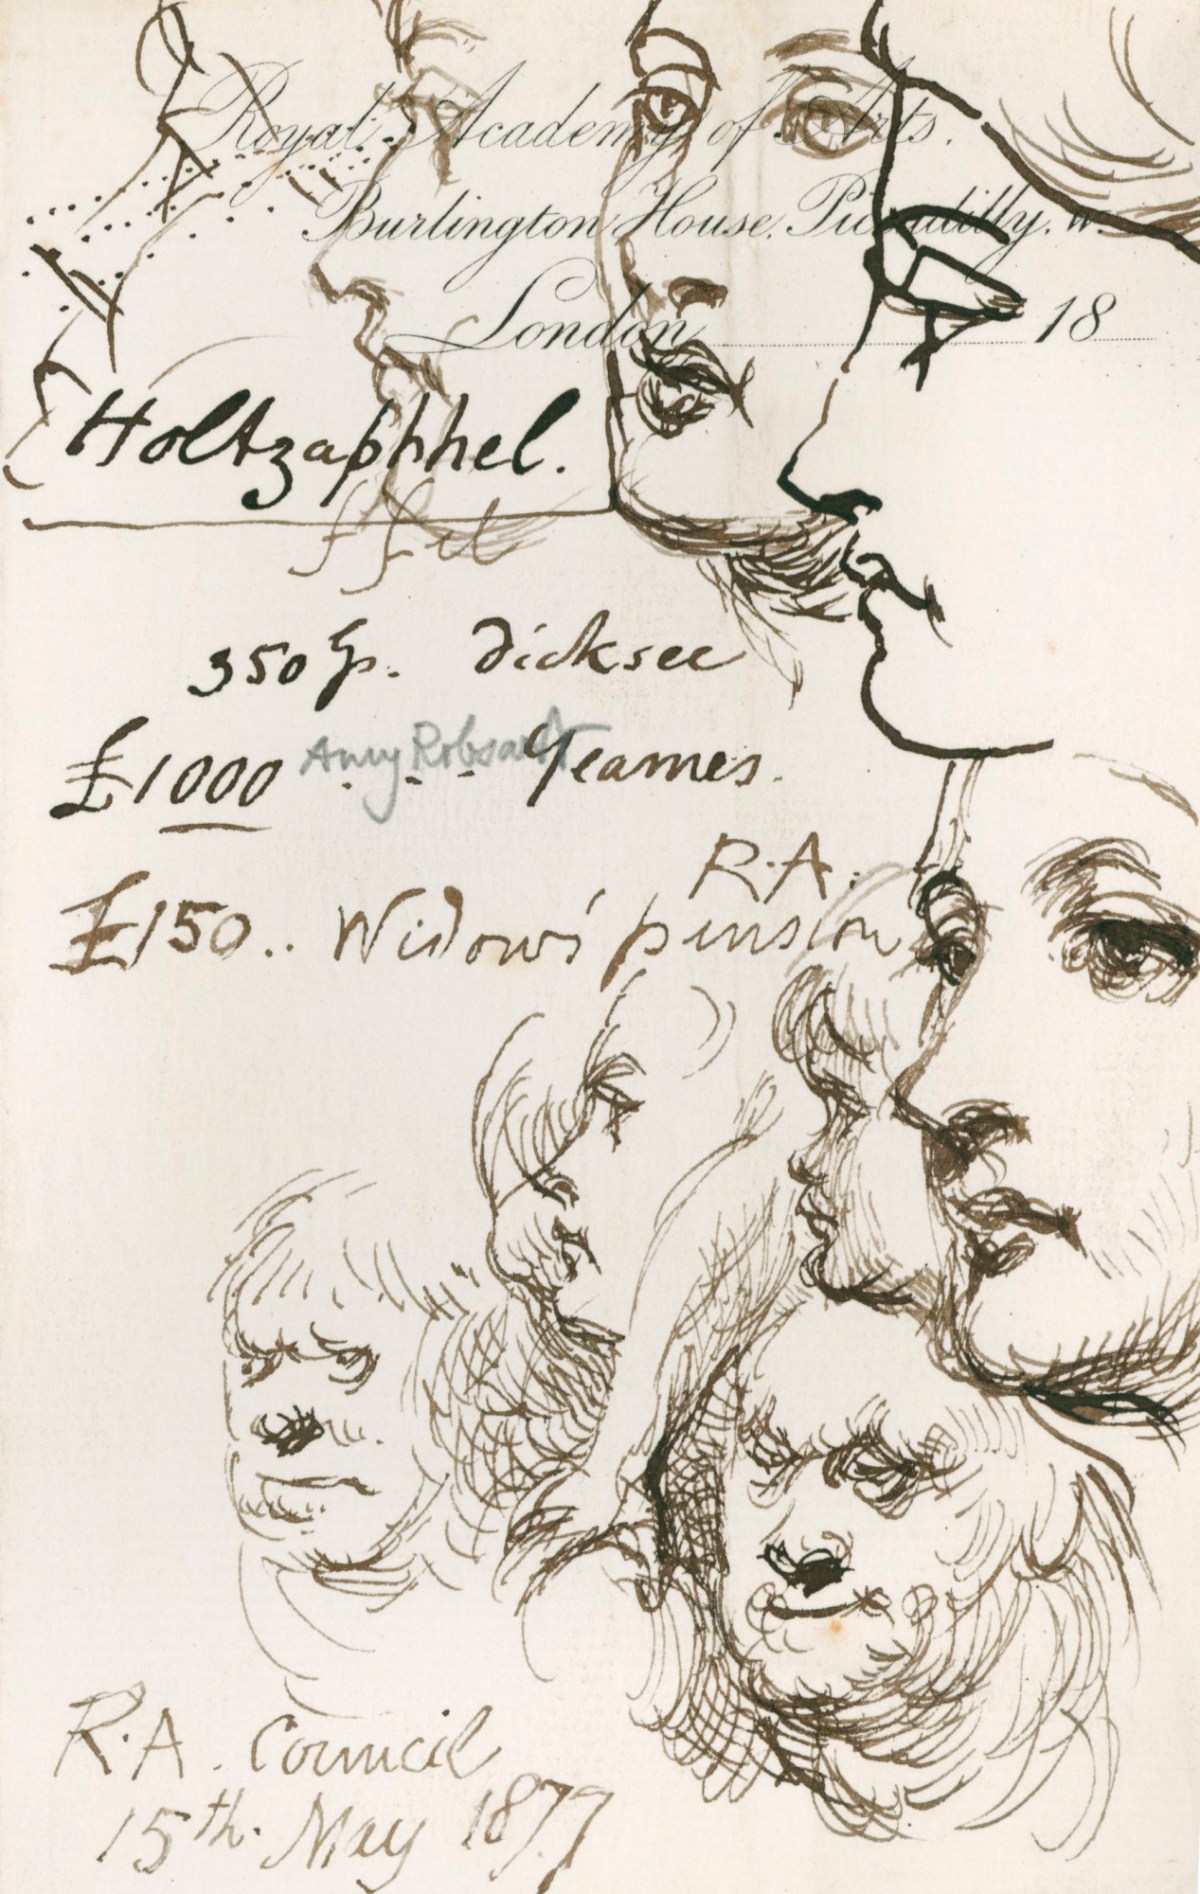 Royal Academy of Arts.
Burlington House, Piccadilly. W.
London 18
Holtzaphhel.
ffel
350 gs. Dicksee
£1000 Amy Robsart Yeames.
R.A.
£150.. Widows' pension
R.A. Council
15th. May 1877